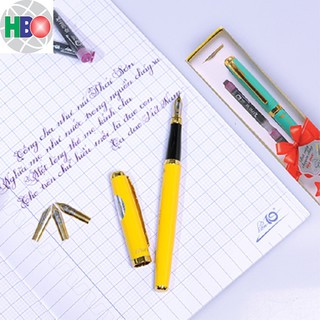 HBO
Công cha như núi Thái Sơn
Nghĩa mẹ như nước trong nguồn chảy ra
Một lòng thờ mẹ kính cha
Cho tròn chữ hiếu mới là đạo con
Ca dao Việt Nam